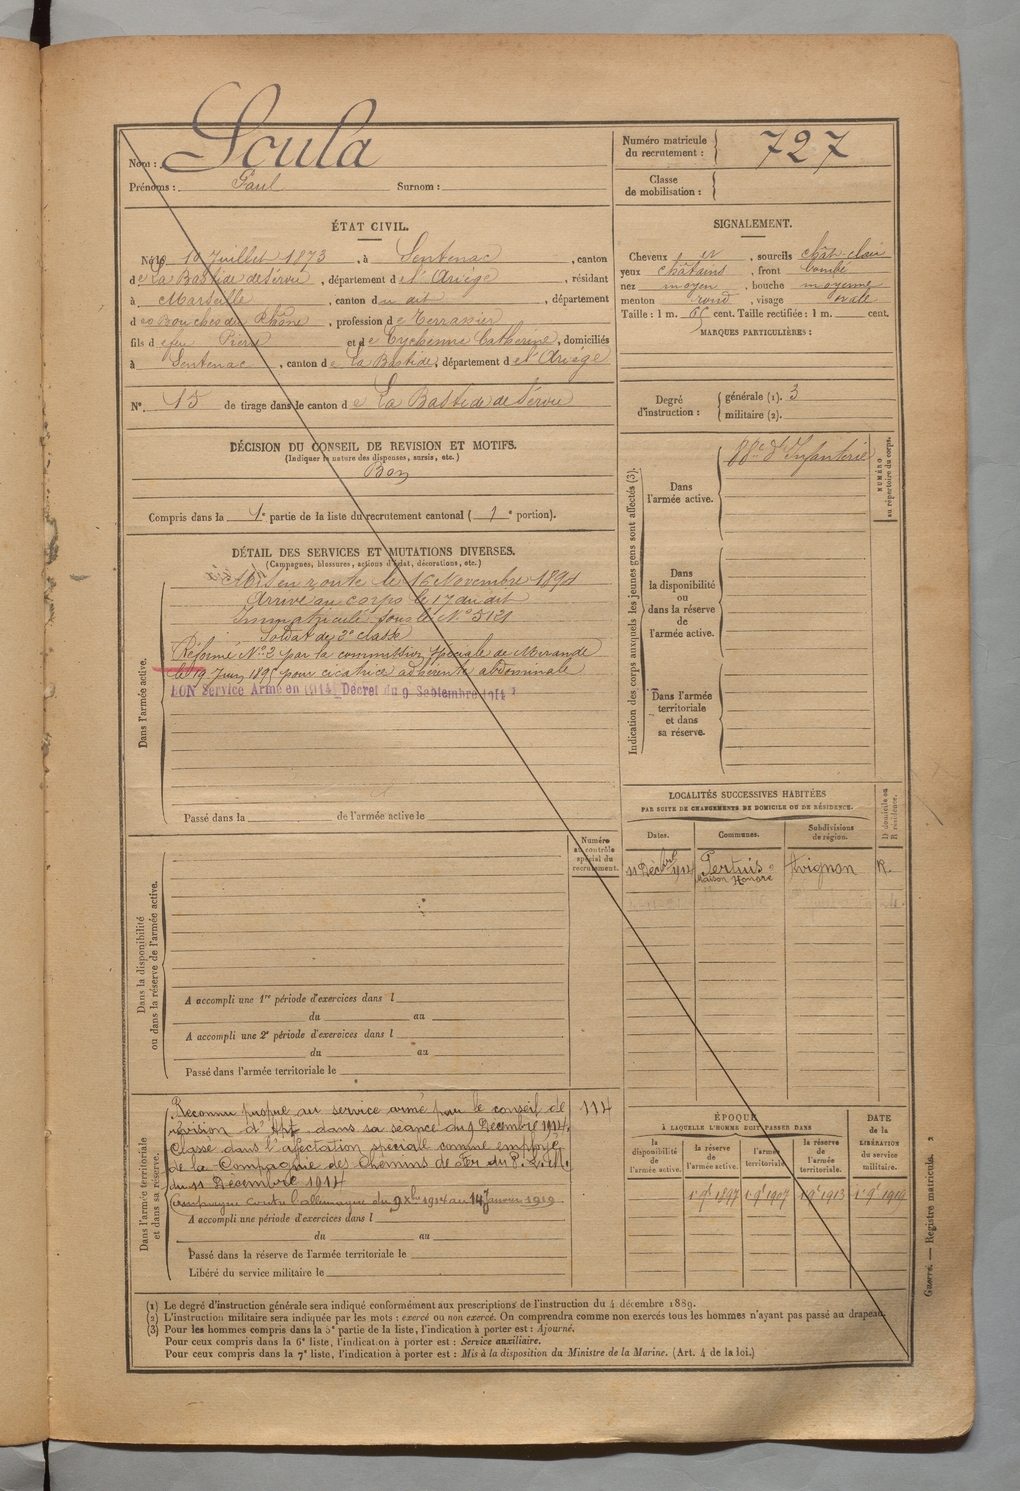 Nom : Soula
Prénoms : Paul Surnom :
Numéro matricule
du recrutement : 727
Classe
de mobilisation :
ÉTAT CIVIL.
Né le 19 Juillet 1873, à Sentenac, canton
de La Bastide de Sérou, département de l'Ariège, résidant
à Marseille, canton du dit, département
des Bouches du Rhône, profession de Terrassier
fils de feu Pierre et de Eychenne Catherine, domiciliés
à Sentenac, canton de La Bastide, département de l'Ariège
N° 15 de tirage dans le canton de La Bastide de Sérou
SIGNALEMENT.
Cheveux et, sourcils chât clair
yeux châtains, front bombé
nez moyen, bouche moyenne
menton rond, visage ovale
Taille : 1 m. 65 cent. Taille rectifiée : 1 m. cent.
MARQUES PARTICULIÈRES :
Degré
d'instruction :
générale (1). 3
militaire (2).
DÉCISION DU CONSEIL DE REVISION ET MOTIFS.
(Indiquer la nature des dispenses, sursis, etc.)
Bon
Compris dans la 1e partie de la liste du recrutement cantonal ( 1e portion).
DÉTAIL DES SERVICES ET MUTATIONS DIVERSES.
(Campagnes, blessures, actions d'éclat, décorations, etc.)
Dans l'armée active.
Mis en route le 16 Novembre 1894
Arrivé au corps le 17 du dit
Immatriculé sous le N° 5121
Soldat de 2e classe
Réformé N° 2 par la commission spéciale de Mirande
le 19 Juin 1895 pour cicatrice adhérente abdominale
BON Service Armé en 1914 Décret du 9 Septembre 1914
Passé dans la de l'armée active le
Indication des corps auxquels les jeunes gens sont affectés (3).
NUMÉRO
au répertoire du corps.
Dans
l'armée active.
88e d'Infanterie
Dans
la disponibilité
ou
dans la réserve
de
l'armée active.
Dans l'armée
territoriale
et dans
sa réserve.
LOCALITÉS SUCCESSIVES HABITÉES
PAR SUITE DE CHANGEMENTS DE DOMICILE OU DE RÉSIDENCE.
D domicile ou
R résidence.
Dates. Communes. Subdivisions
de région.
11 Décbre 1914 Pertuis Avignon R.
Maison Honoré
Dans la disponibilité
ou dans la réserve de l'armée active.
Numéro
au contrôle
spécial du
recrutement.
A accompli une 1re période d'exercices dans l
du au
A accompli une 2e période d'exercices dans l
du au
Passé dans l'armée territoriale le
Dans l'armée territoriale
et dans sa réserve.
Reconnu propre au service armé par le conseil de 114
révision d'Apt dans sa séance du 9 Décembre 1914.
Classé dans l'affectation spéciale comme employé
de la Compagnie des Chemins de Fer du P. L. M.
du 11 Décembre 1914
Campagne contre l'allemagne du 9 Xbre 1914 au 14 Janvier 1919
A accompli une période d'exercices dans l
du au
Passé dans la réserve de l'armée territoriale le
Libéré du service militaire le
ÉPOQUE
À LAQUELLE L'HOMME DOIT PASSER DANS
DATE
de la
LIBÉRATION
du service
militaire.
la
disponibilité
de
l'armée active.
la réserve
de
l'armée active.
l'armée
territoriale.
la réserve
de
l'armée
territoriale.
1er 9bre 1897 1er 9bre 1907 1er 9bre 1913 1er 9bre 1919
Guerre. — Registre matricule. 2
(1) Le degré d'instruction générale sera indiqué conformément aux prescriptions de l'instruction du 4 décembre 1889.
(2) L'instruction militaire sera indiquée par les mots : exercé ou non exercé. On comprendra comme non exercés tous les hommes n'ayant pas passé au drapeau.
(3) Pour les hommes compris dans la 5e partie de la liste, l'indication à porter est : Ajourné.
Pour ceux compris dans la 6e liste, l'indication à porter est : Service auxiliaire.
Pour ceux compris dans la 7e liste, l'indication à porter est : Mis à la disposition du Ministre de la Marine. (Art. 4 de la loi.)